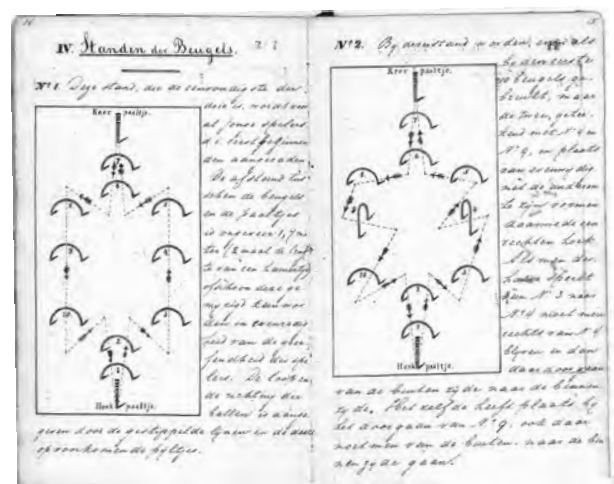 14
IV. Standen der Beugels.
Nº 1. Deze stand, die de eenvoudigste der
drie is, wordt een
al jonge spelers
d. i. eerstbeginnen
den aangeraden.
De afstand tus
schen de beugels
en de paaltjes
is ongeveer 1,7 me
ter (2 maal de lengte
te van een hamersteel)
ofschoon deze ge
wijzigd kan wor
den in evenredig
heid van de geoe
fendheid der spe
lers. De loop en
de richting der
ballen is aange
geven door de gestippelde lijnen en de daarin
voorkomende pijltjes.
Keer paaltje.
Honk paaltje.
15
Nº 2. By dezen stand worden, even als
by den eerste
10 beugels ge
bruikt, maar
de twee, getee
kend met Nº 4 en
Nº 9, en plaats
van evenwydig
met de anderen
te zyn, vormen
daarmede een
rechten hoek.
Als men der
halve speelt
van Nº 3 naar
Nº 4 moet men
rechts van Nº 4
blyven en dan
daar doorgaan
van de buiten zyde naar de binnen
zyde. Het zelfde heeft plaats by
het doorgaan van Nº 9, ook daar
moet men van de buiten- naar de bin
nenzyde gaan.
Keer paaltje.
Honk paaltje.